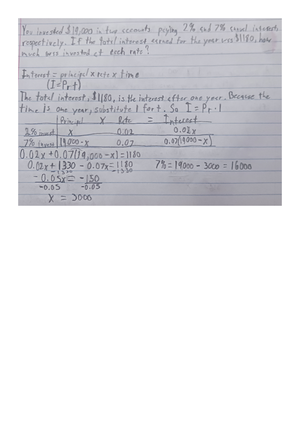 You invested $19,000 in two accounts paying 2% and 7% annual interest,
respectively. If the total interest earned for the year was $1180, how
much was invested at each rate?
Interest = principal x rate x time
(I = Prt)
The total interest, $1180, is the interest after one year. Because the
time is one year, substitute 1 for t. So I = Pr · 1
Principal X Rate = Interest
2% invest X 0.02 0.02x
7% invests 19,000-X 0.07 0.07(19,000-x)
0.02x + 0.07(19,000-x) = 1180
0.02x + 1330 - 0.07x = 1180 7% = 19000 - 3000 = 16000
-1330 -1330
-0.05x = -150
-0.05 -0.05
X = 3000